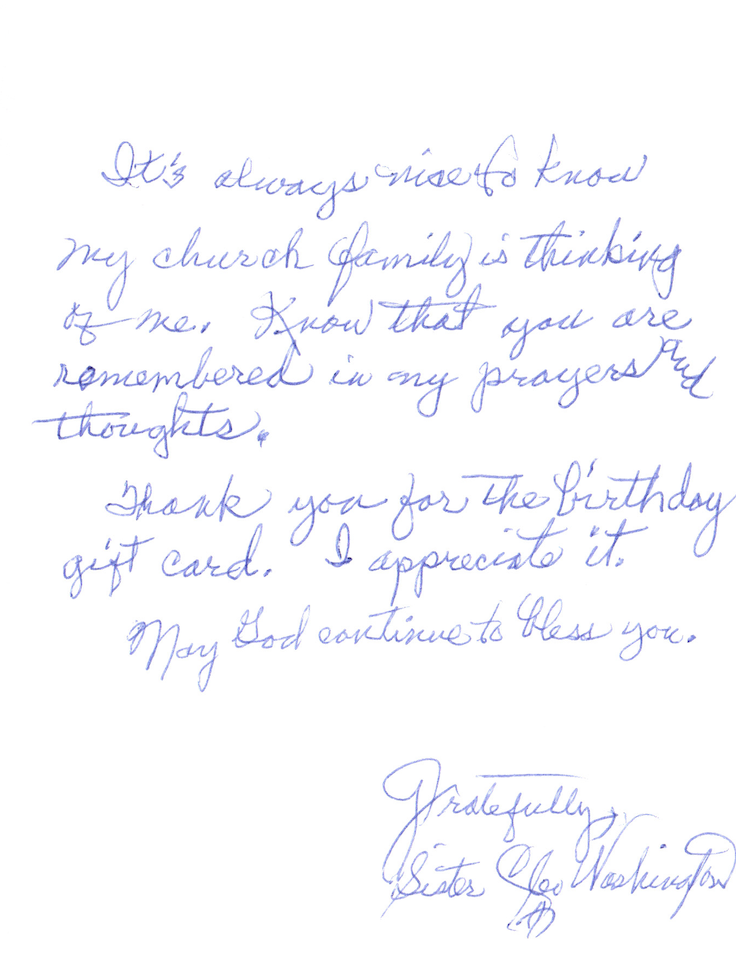 It's always nice to know
my church family is thinking
of me. Know that you are
remembered in my prayers and
thoughts.
Thank you for the birthday
gift card. I appreciate it.
May God continue to bless you.
Gratefully,
Sister Cleo Washington